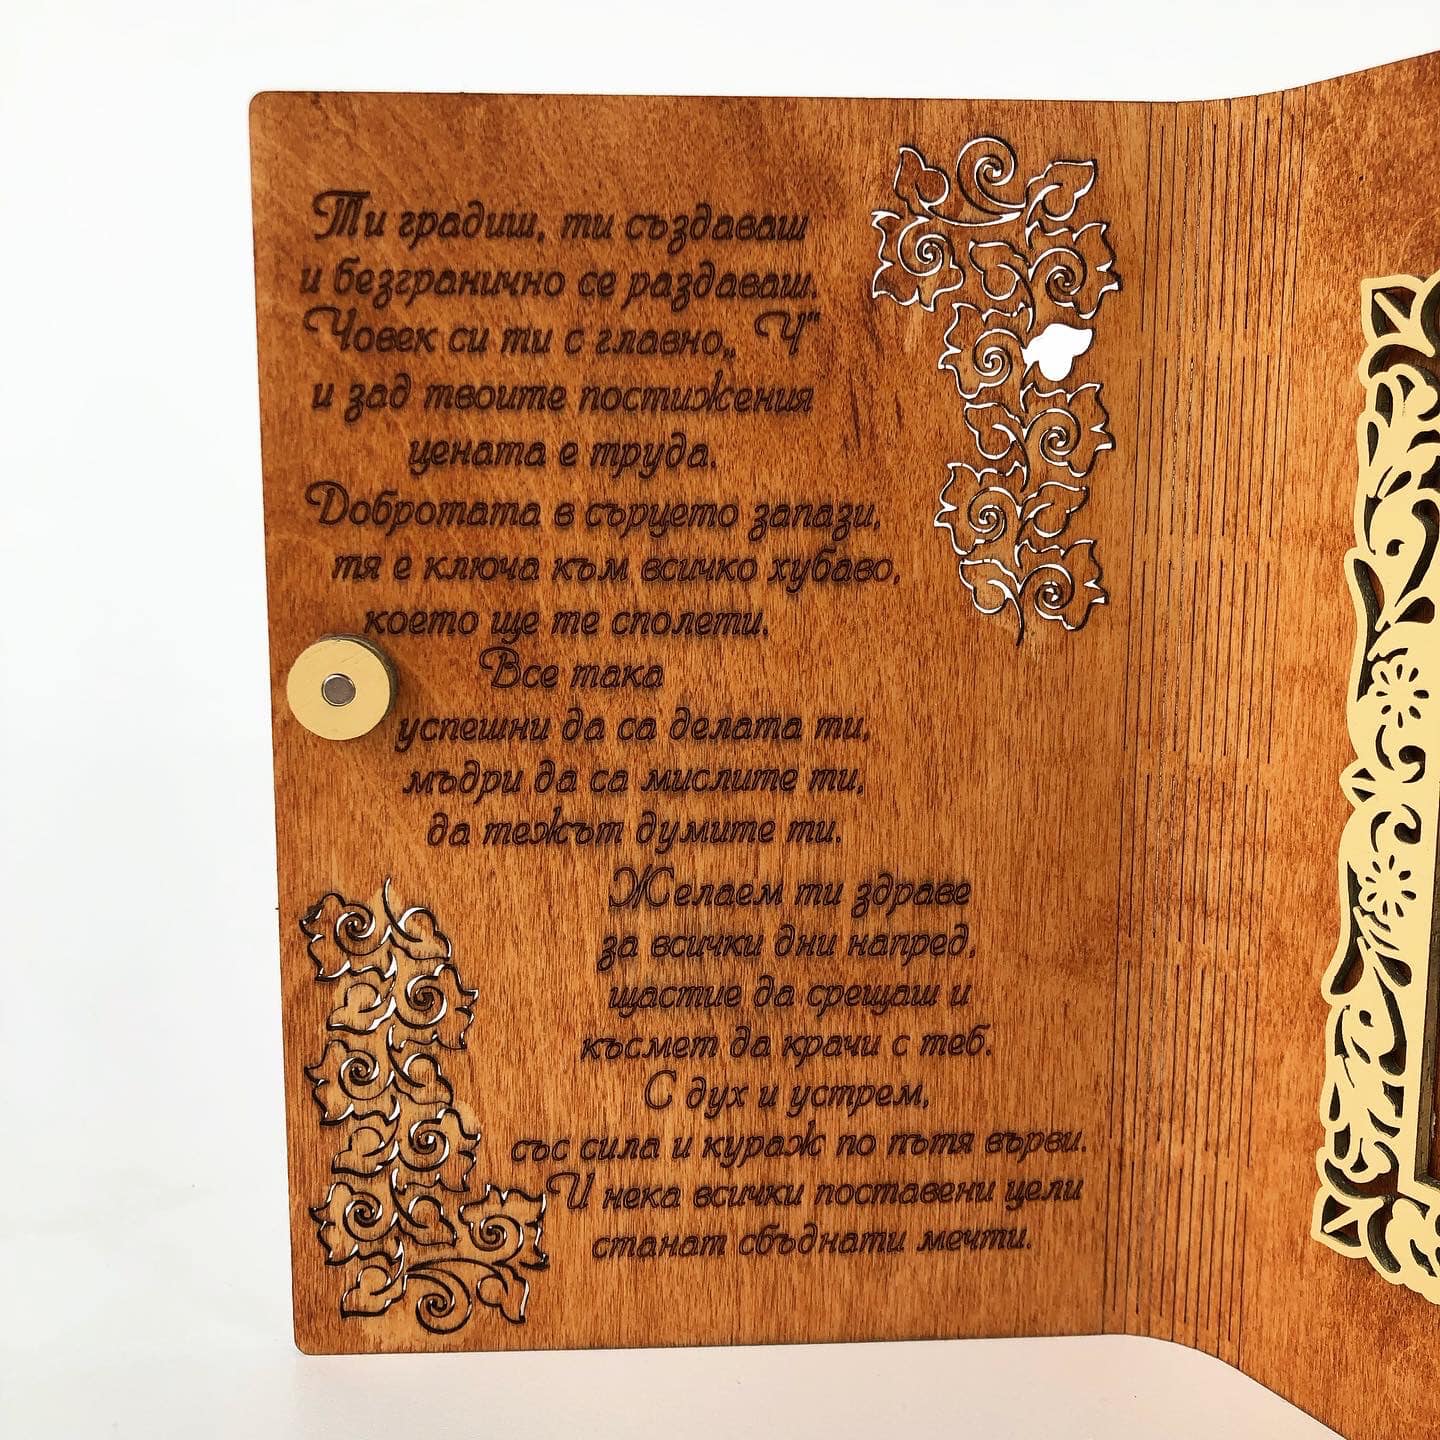 Ти градиш, ти създаваш
и безгранично се раздаваш.
Човек си ти с главно„ Ч“
и зад твоите постижения
цената е труда.
Добротата в сърцето запази,
тя е ключа към всичко хубаво,
което ще те сполети.
Все така
успешни да са делата ти,
мъдри да са мислите ти,
да тежът думите ти.
Желаем ти здраве
за всички дни напред,
щастие да срещаш и
късмет да крачи с теб.
С дух и устрем,
със сила и кураж по пътя върви.
И нека всички поставени цели
станат сбъднати мечти.